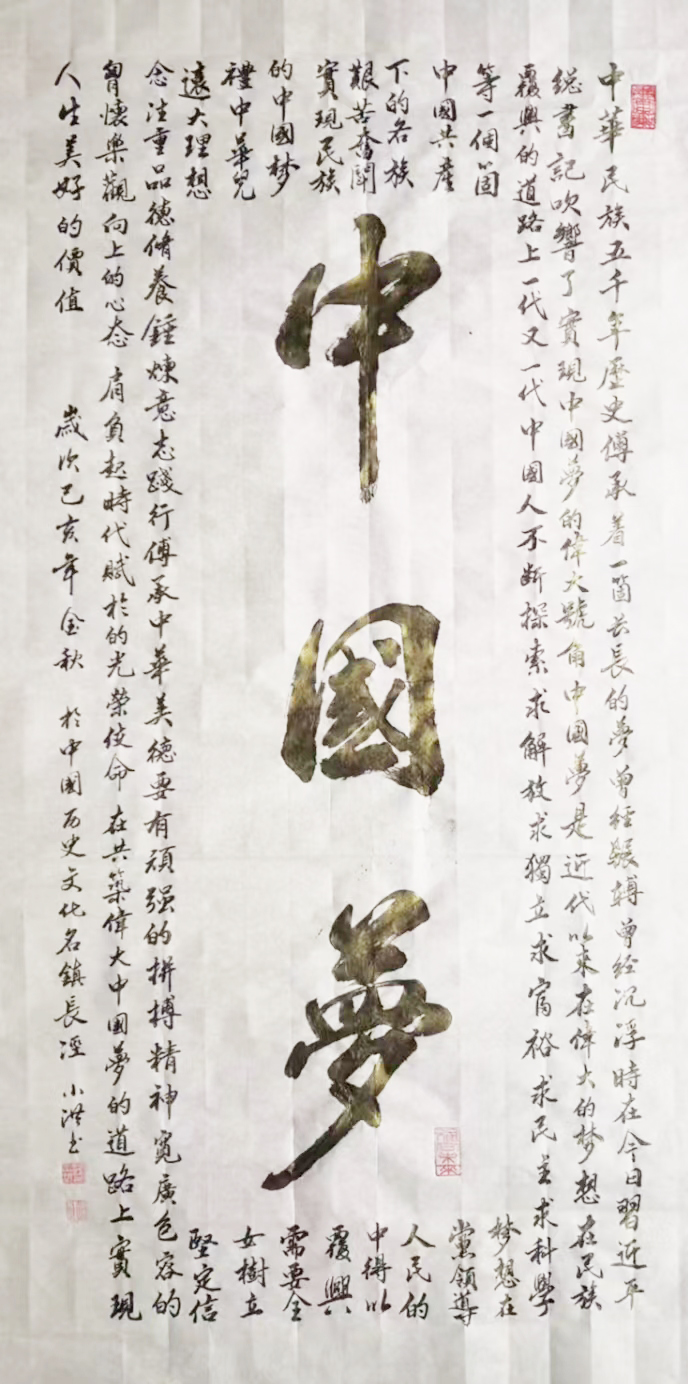 中國夢
中華民族五千年歷史傳承着一箇长長的夢曾經輾轉曾经沉浮時在今日習近平
総書記吹響了實現中國夢的偉大號角中國夢是近代以來在偉大的梦想在民族
覆興的道路上一代又一代中國人不断探索求解放求獨立求富裕求民主求科學
等一個箇梦想在
中國共產黨領導
下的各族人民的
艱苦奮鬪中得以
實現民族覆興
的中國梦需要全
禮中華兒女樹立
遠大理想堅定信
念注重品德脩養錘煉意志踐行傳承中華美德要有頑强的拼搏精神寬廣包容的
胷懷樂觀向上的心态肩負起時代賦於的光榮使命在共築偉大中國夢的道路上實現
人生美好的價值 歲次己亥年金秋 於中國历史文化名鎮長涇 小洪书